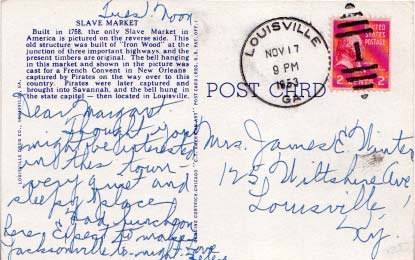 Tues. Noon
SLAVE MARKET
Built in 1758, the only Slave Market in
America is pictured on the reverse side. This
old structure was built of "Iron Wood" at the
junction of three important highways, and the
present timbers are original. The bell hanging
in this market and shown in the picture was
cast for a French Convent in New Orleans
captured by Pirates on the way over to this
country. Pirates were later captured and
brought into Savannah, and the bell hung in
the state capitol — then located in Louisville.
Dear Margaret
Thought you
might be interested
in this town -
very quiet and
sleepy place
Had luncheon
here. Expect to make
Jacksonville to-night. Love
POST CARD
LOUISVILLE
NOV 17
9 PM
1953
GA.
UNITED
STATES
POSTAGE
2 CENTS 2
Mrs. James E. Winter
Wiltshire Ave
Louisville
Ky.